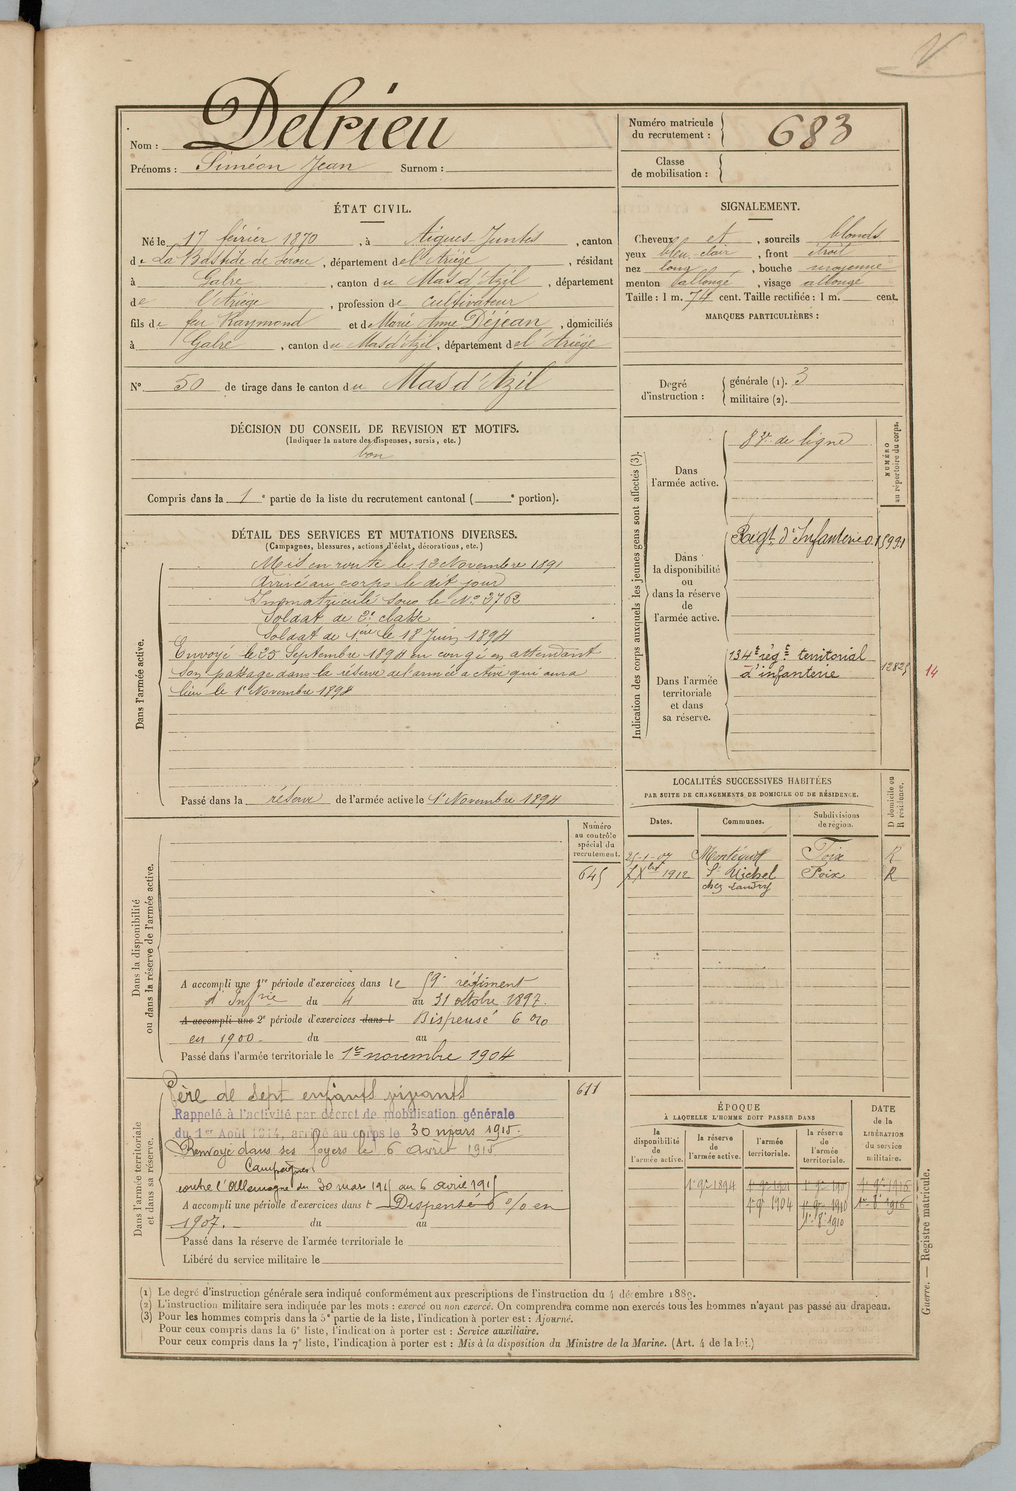 V
Nom : Delrieu
Prénoms : Siméon Jean Surnom :
Numéro matricule du recrutement : 683
Classe de mobilisation :
ÉTAT CIVIL.
Né le 17 février 1870, à Aigues-Juntes, canton
de La Bastide de Serou, département de l'Ariège, résidant
à Gabre, canton du Mas d'Azil, département
de l'Ariège, profession de cultivateur
fils de feu Raymond et de Marie Anne Déjean, domiciliés
à Gabre, canton du Mas d'Azil, département de l'Ariège
N° 50 de tirage dans le canton du Mas d'Azil
SIGNALEMENT.
Cheveux et, sourcils blonds
yeux bleu clair, front étroit
nez long, bouche moyenne
menton allongé, visage allongé
Taille : 1 m. 74 cent. Taille rectifiée : 1 m. cent.
MARQUES PARTICULIÈRES :
Degré d'instruction : générale (1). 3
militaire (2).
DÉCISION DU CONSEIL DE REVISION ET MOTIFS.
(Indiquer la nature des dispenses, sursis, etc.)
bon
Compris dans la 1e partie de la liste du recrutement cantonal ( e portion).
DÉTAIL DES SERVICES ET MUTATIONS DIVERSES.
(Campagnes, blessures, actions d'éclat, décorations, etc.)
Dans l'armée active.
Mis en route le 13 Novembre 1891
Arrivé au corps le dit jour
Immatriculé sous le N° 3762
Soldat de 2e classe
Soldat de 1ère le 18 Juin 1894
Envoyé le 25 Septembre 1894 en congé en attendant
son passage dans la réserve de l'armée active qui aura
lieu le 1er Novembre 1894
Passé dans la réserve de l'armée active le 1er Novembre 1894
Indication des corps auxquels les jeunes gens sont affectés (3).
NUMÉRO au répertoire du corps.
Dans l'armée active.
83e de ligne
Dans la disponibilité ou dans la réserve de l'armée active.
Régt d'Infanterie
Dans l'armée territoriale et dans sa réserve.
134e régt territorial
d'infanterie
14
LOCALITÉS SUCCESSIVES HABITÉES
PAR SUITE DE CHANGEMENTS DE DOMICILE OU DE RÉSIDENCE.
D domicile ou R résidence.
Dates. Communes. Subdivisions de région.
Montégut Foix R
1912 St Michel Foix R
chez
Dans la disponibilité ou dans la réserve de l'armée active.
Numéro au contrôle spécial du recrutement.
645
A accompli une 1re période d'exercices dans le 59e régiment
d'Infrie du 4 au 31 octobre 1897.
A accompli une 2e période d'exercices dans l Dispensé 6 0/0
en 1900. du au
Passé dans l'armée territoriale le 1er novembre 1904
Dans l'armée territoriale et dans sa réserve.
611
Père de sept enfants vivants
Rappelé à l'activité par décret de mobilisation générale
du 1er Août 1914, arrivé au corps le 30 mars 1915.
Renvoyé dans ses foyers le 6 avril 1915
Campagnes
contre l'Allemagne du 30 mars 1915 au 6 avril 1915
A accompli une période d'exercices dans l Dispensé 6 0/0 en
1907. du au
Passé dans la réserve de l'armée territoriale le
Libéré du service militaire le
ÉPOQUE
À LAQUELLE L'HOMME DOIT PASSER DANS
la disponibilité de l'armée active. la réserve de l'armée active. l'armée territoriale. la réserve de l'armée territoriale.
DATE de la LIBÉRATION du service militaire.
1er 9bre 1894
1er 9bre 1904
Guerre. — Registre matricule.
(1) Le degré d'instruction générale sera indiqué conformément aux prescriptions de l'instruction du 4 décembre 1889.
(2) L'instruction militaire sera indiquée par les mots : exercé ou non exercé. On comprendra comme non exercés tous les hommes n'ayant pas passé au drapeau.
(3) Pour les hommes compris dans la 5e partie de la liste, l'indication à porter est : Ajourné.
Pour ceux compris dans la 6e liste, l'indication à porter est : Service auxiliaire.
Pour ceux compris dans la 7e liste, l'indication à porter est : Mis à la disposition du Ministre de la Marine. (Art. 4 de la loi.)